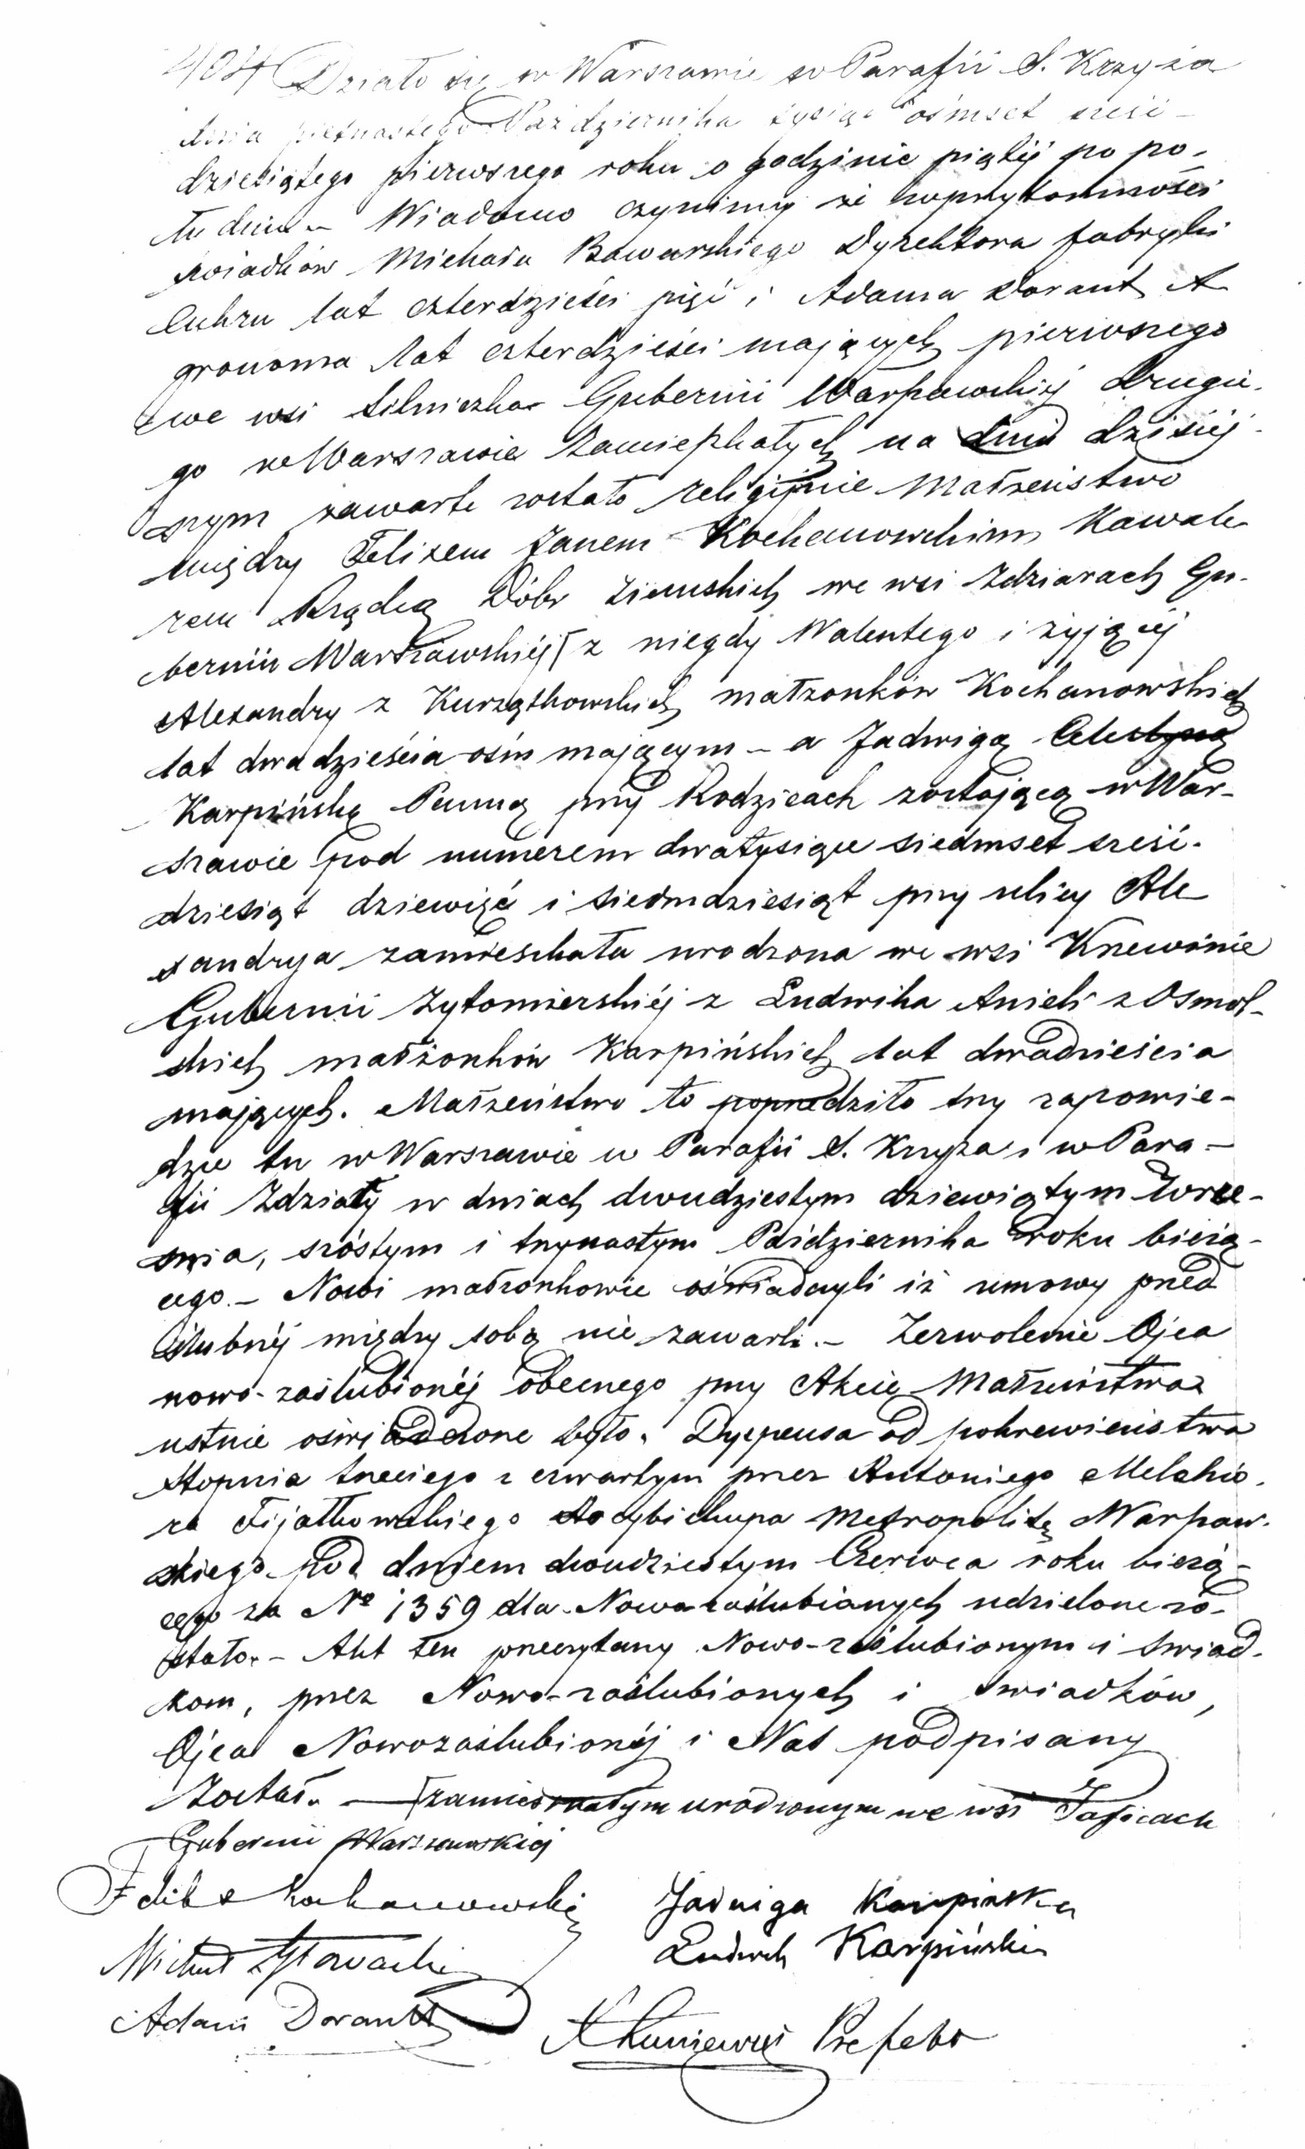 404 Działo się w Warszawie w Parafii S. Krzyża
dnia piętnastego Października tysiąc ośmset sześć-
dziesiątego pierwszego roku o godzinie piątéj po po-
łudniu – Wiadomo czynimy że w przytomności
świadków Michała Bawarskiego Dyrektora fabryki
Cukru lat czterdzieści pięć i Adama Dorant A
gronoma lat czterdzieści mających pierwszego
we wsi Silniczka Gubernii Warszawskiéj drugie-
go w Warszawie zamieszkałych na dniu dzisiéj-
szym zawarte zostało religijnie Małżeństwo
między Felixem Janem Kochanowskim Kawale
rem Rządcą Dóbr Ziemskich we wsi Zdziarach Gu-
bernii Warszawskiéj [ z niegdy Walentego i żyjącéj
Alexandry z Kurzątkowskich małżonków Kochanowskich
lat dwadzieścia ośm mającym – a Jadwigą Celestyną
Karpińską Panną przy Rodzicach zostającą w War-
szawie pod numerem dwatysiące siedmset sześć-
dziesiąt dziewięć i siedmdziesiąt przy ulicy Ale
xandrya zamieszkała urodzona we wsi Kniewinie
Gubernii Zytomierskiéj z Ludwika Anieli z Osmol-
skich małżonków Karpińskich lat dwadzieścia
mających. Małżeństwo to poprzedziło trzy zapowie-
dzie tu w Warszawie w Parafii S. Krzyża i w Para-
fii Zdziały w dniach dwudziestym dziewiątym Wrze-
śnia, szóstym i trzynastym Października roku bieżą-
cego – Nowi małżonkowie oświadczyli iż umowy przed
ślubnéj między sobą nie zawarli. – Zezwolenie Ojca
nowo-zaślubionéj obecnego przy Akcie Małżeństwa
ustnie oświadczone było. Dyspensa od pokrewieństwa
stopnia trzeciego z czwartym przez Antoniego Melchio-
ra Fijałkowskiego Arcybiskupa Metropolitę Warszaw-
skiego pod dniem dwudziestym Czerwca roku bieżą-
cego za No 1359 dla Nowo-zaślubionych udzielone zo-
stało. – Akt ten przeczytany Nowo-zaślubionym i świad-
kom, przez Nowo-zaślubionych i świadków,
Ojca Nowozaślubionéj i Nas podpisany
został. – [zamieszkałym urodzonym we wsi Jasicach
Gubernii Warszawskiéj
Felix Kochanowski Jadwiga Karpinska
Michał Ludwik Karpiński
Adam Dorant
Prefekt